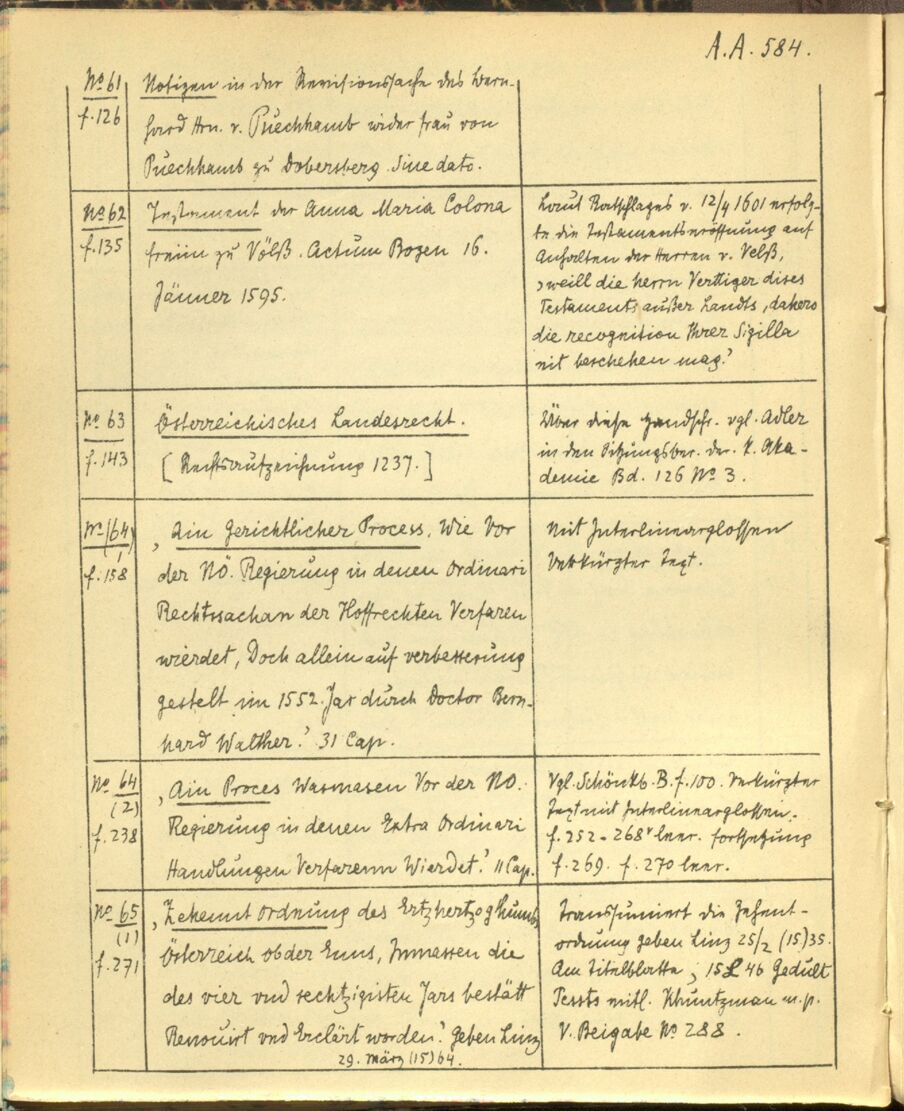 A.A. 584.
No 61
f. 126
Notizen in der Revisionssache des Bern-
hard Hrn. v. Puechhamb wider frau von
Puechhamb zu Dobersberg. Sine dato.
No 62
f. 135
Testament der Anna Maria Colona
freiin zu Völß. Actum Bozen 16.
Jänner 1595.
Laut Ratschlages v. 12/4 1601 erfolg-
te die Testamentseröffnung auf
Anhalten der Herren v. Velß,
‚weill die herrn Verttiger dises
Testaments außer Landts, dahero
die recognition Ihrer Sigilla
nit beschehen mag.‘
No 63
f. 143
Österreichisches Landesrecht.
[Rechtsaufzeichnung 1237.]
Über diese Handschr. vgl. Adler
in den Sitzungsber. der k. Aka-
demie Bd. 126 No 3.
No 64
(1)
f. 158
‚Ain gerichtlicher Process, Wie Vor
der NÖ. Regierung in denen Ordinari
Rechtssachan der Hoffrechten Verfaren
wierdet, Doch allein auf verbesserung
gestelt im 1552. Jar durch Doctor Bern-
hard Walther.‘ 31 Cap.
Mit Interlinearglossen
Verkürzter Text.
No 64
(2)
f. 238
‚Ain Proces Wasmasen Vor der NÖ.
Regierung in denen Extra Ordinari
Handlungen Verfarenn Wierdet.‘ 11 Cap.
Vgl. Schönkb. B. f. 100. Verkürzter
Text mit Interlinearglossen.
f. 252 - 268v leer. fortsetzung
f. 269. f. 270 leer.
No 65
(1)
f. 271
‚Zehennt Ordnung des Ertzhertzogthumbs
Österreich ob der Enns, Inmassen die
des vier vnd sechtzigisten Jars bestätt
Renouirt vnd Erclärt worden.‘ Geben Linz
29. März (15)64.
Transsumiert die Zehent-
ordnung geben Linz 25/2 (15)35.
Am Titelblatte ‚ 15 46 Gedult
mitl. Khuntzman m.p.
V. Beigabe No 288.